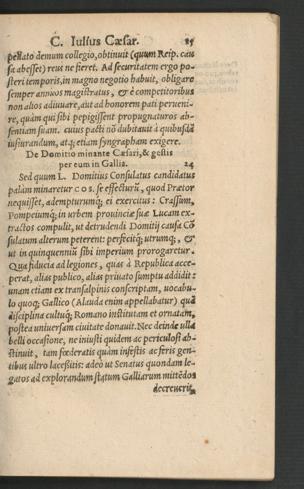 C. Iulius Cæsar. 85
pellato demum collegio, obtinuit (quum Reip. cau
sa abesset) reus ne fieret. Ad securitatem ergo po-
steri temporis, in magno negotio habuit, obligare
semper annuos magistratus, & è competitoribus
non alios adiuuare, aut ad honorem pati perueni-
re, quàm qui sibi pepigissent propugnaturos ab-
sentiam suam. cuius pacti nō dubitauit à quibusdā
iusiurandum, atq; etiam syngrapham exigere.
De Domitio minante Cæsari, & gestis
per eum in Gallia. 24
Sed quum L. Domitius Consulatus candidatus
palàm minaretur COS. se effecturū, quod Prætor
nequisset, adempturumq; ei exercitus: Crassum,
Pompeiumq; in urbem prouinciæ suæ Lucam ex-
tractos compulit, ut detrudendi Domitij causa Cō
sulatum alterum peterent: perfecitq; utrumq;, &
ut in quinquennium sibi imperium prorogaretur.
Qua fiducia ad legiones, quas à Republica acce-
perat, alias publico, alias priuato sumptu addidit:
unam etiam ex transalpinis conscriptam, uocabu-
lo quoq; Gallico (Alauda enim appellabatur) quā
disciplina cultuq; Romano institutam et ornatam,
postea uniuersam ciuitate donauit. Nec deinde ulla
belli occasione, ne iniusti quidem ac periculosi ab-
stinuit, tam fœderatis quàm infestis ac feris gen-
tibus ultro lacessitis: adeò ut Senatus quondam le-
gatos ad explorandum statum Galliarum mittēdos
decreuerit,